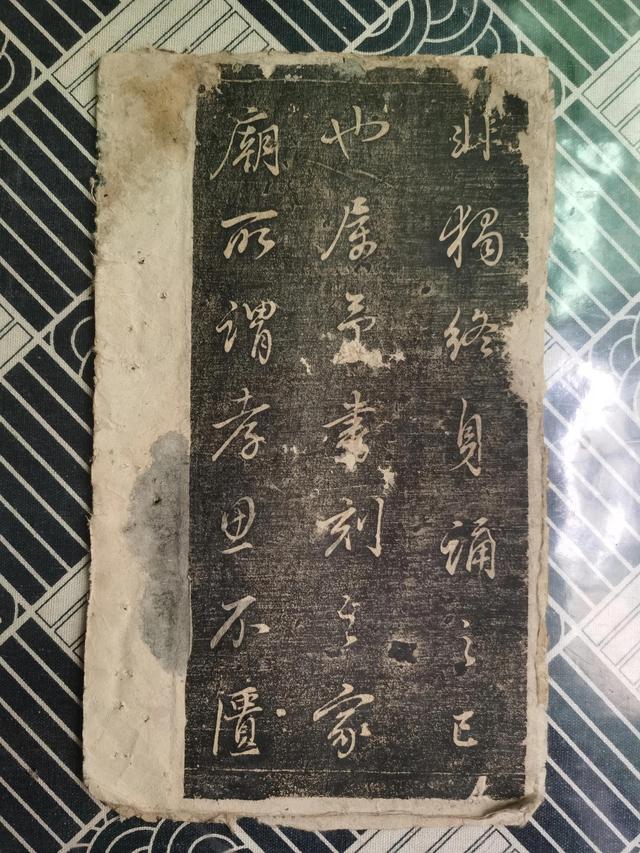 非獨終身誦之已
也属書刻其家
廟所謂孝思不匱